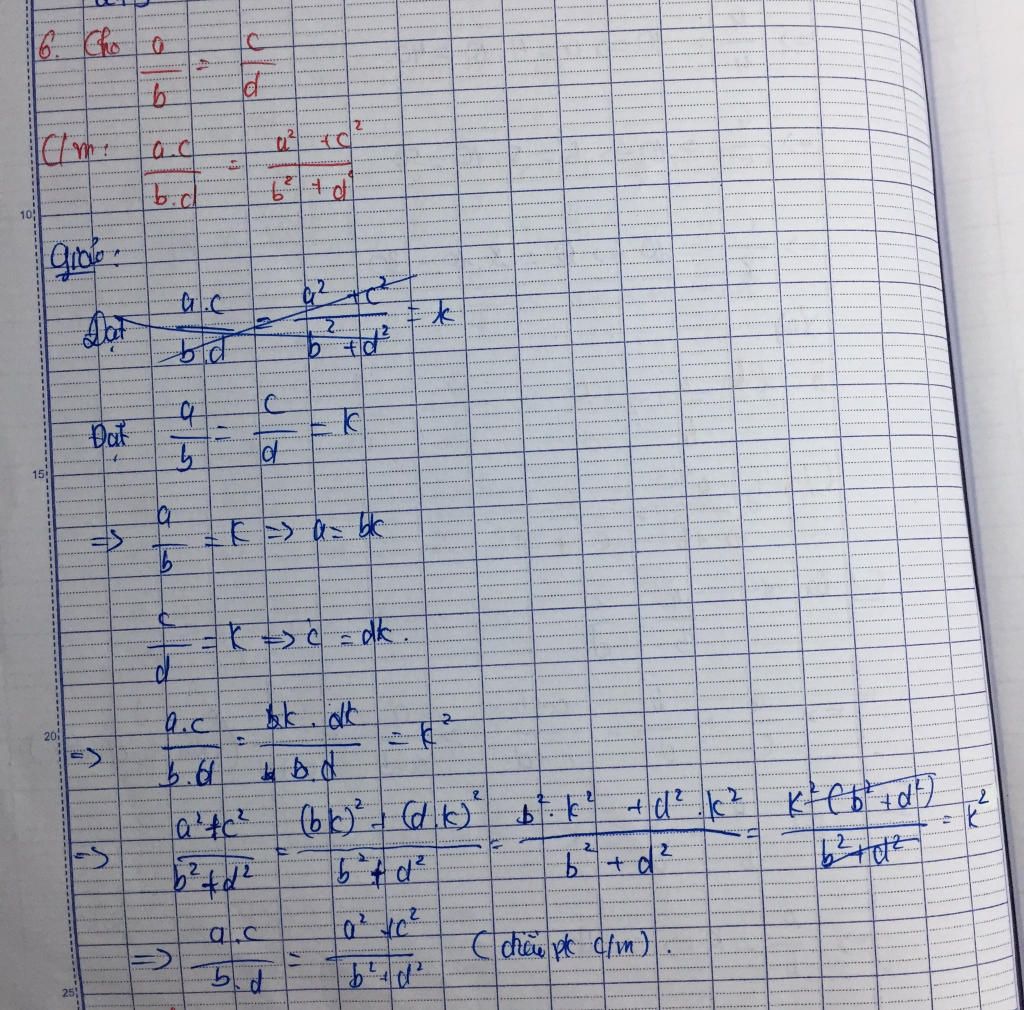 6. Cho a/b = c/d
C/m: a.c/b.d = a² + c²/b² + d²
10
Giải:
Đặt a.c/b.d = a² + c²/b² + d² = k
Đặt a/b = c/d = k
15
=> a/b = k => a = bk
c/d = k => c = dk.
20
=> a.c/b.d = bk . dk/b.d = k²
=> a² + c²/b² + d² = (bk)² + (d.k)²/b² + d² = b² . k² + d² . k²/b² + d² = k² (b² + d²)/b² + d² = k²
=> a.c/b.d = a² + c²/b² + d² (điều pk c/m).
25